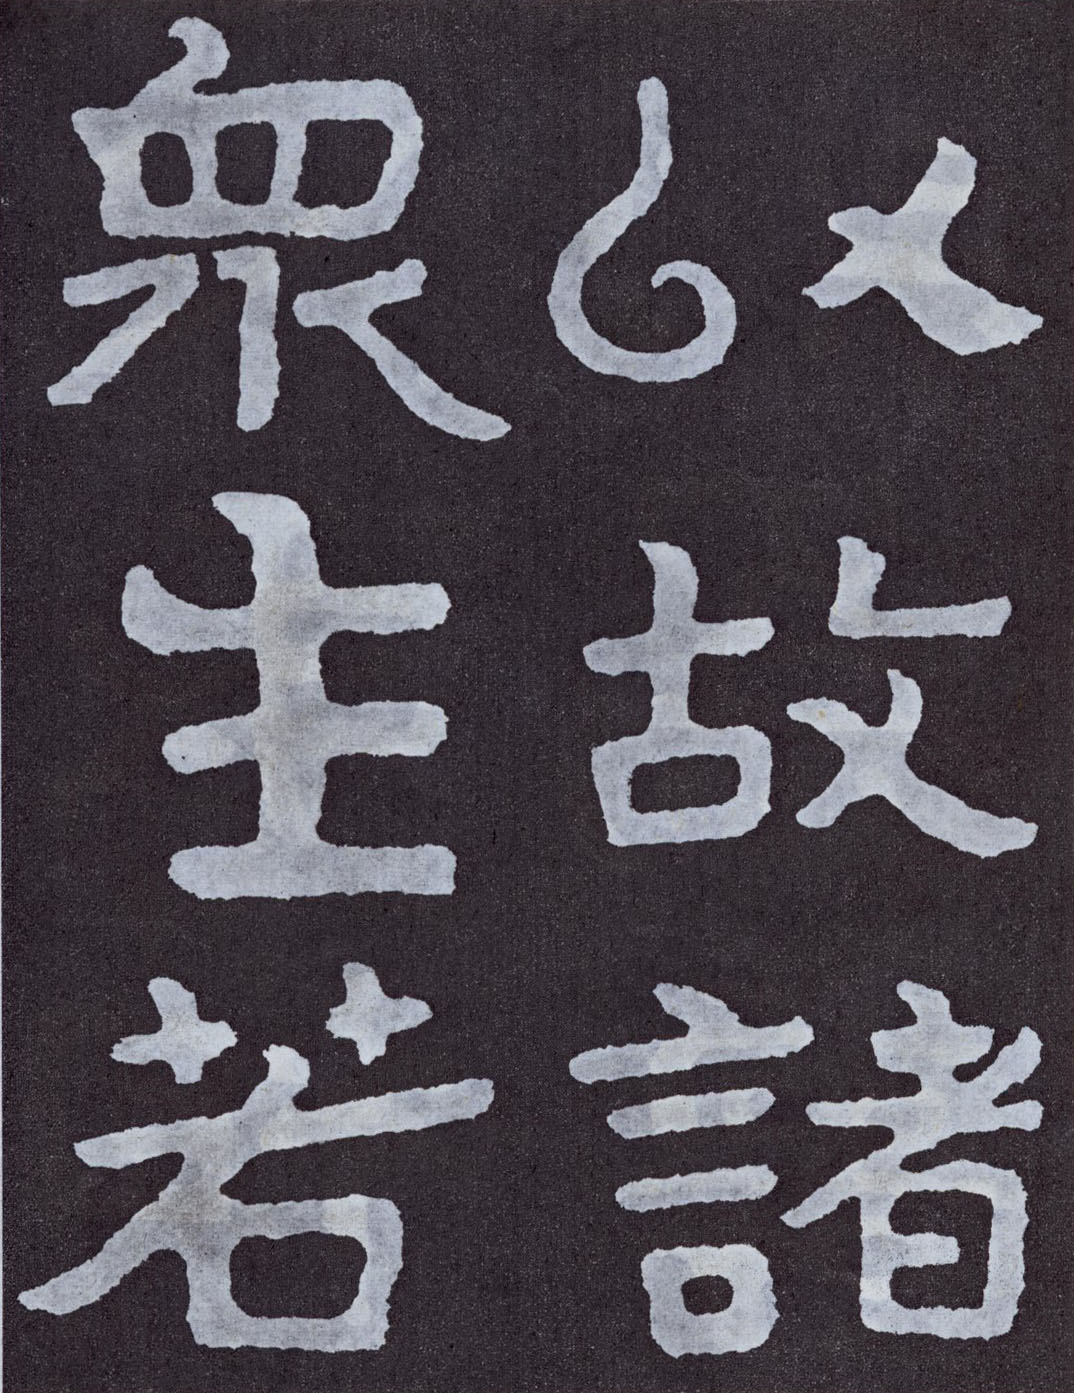 以故諸
衆生若